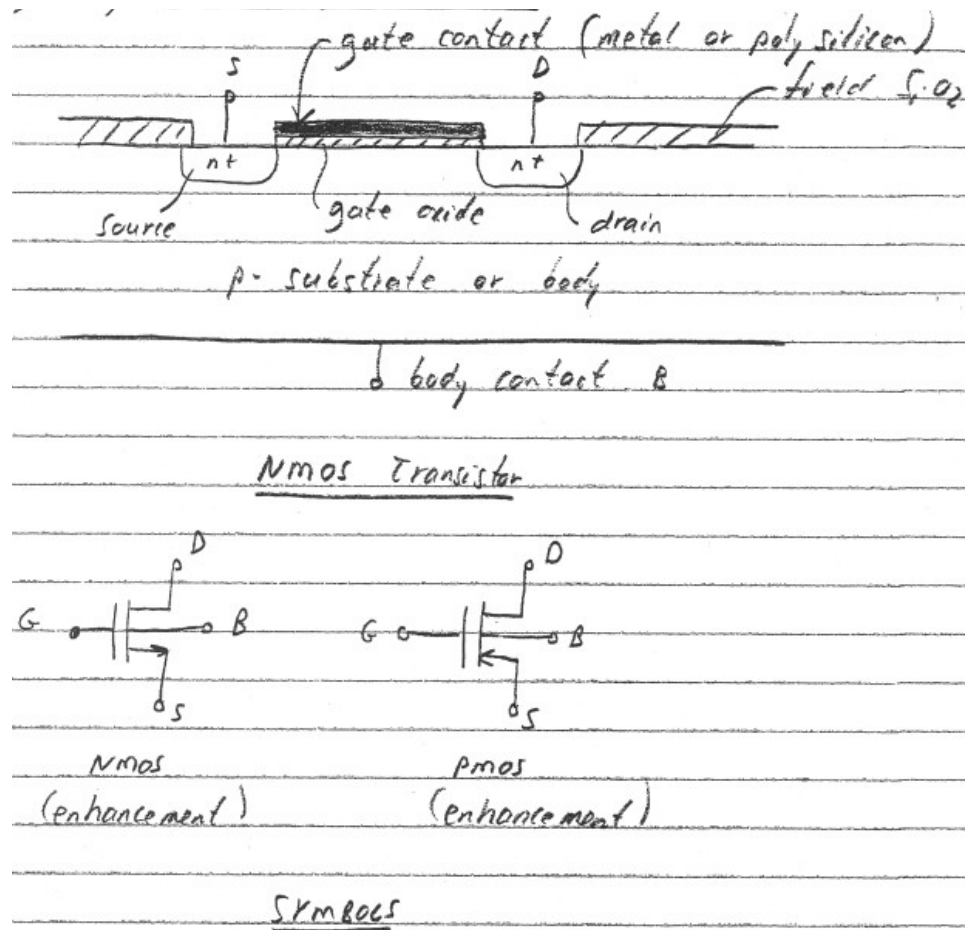 gate contact (metal or poly silicon)
S D
field SiO2
n+ n+
source gate oxide drain
p- substrate or body
body contact B
NMOS Transistor
D D
G B G B
S S
NMOS PMOS
(enhancement) (enhancement)
SYMBOLS